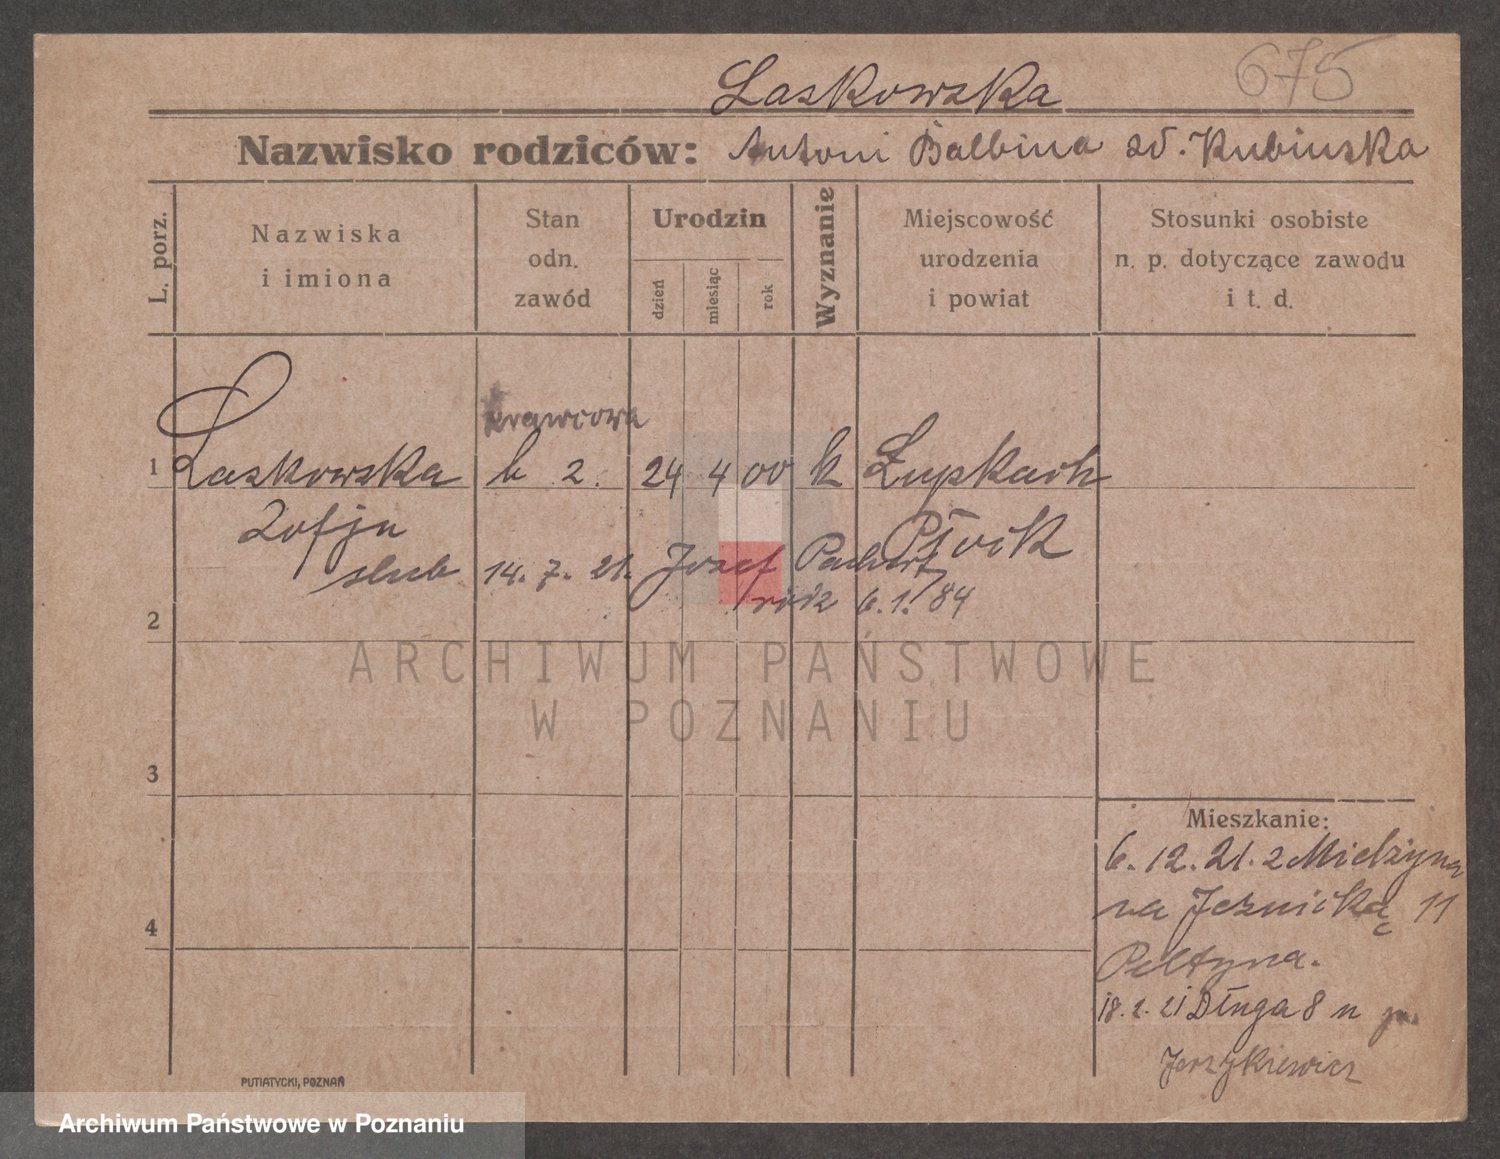 Laskowska
675
Nazwisko rodziców: Antoni Balbina zd. Kubinska
L. porz.
Nazwiska
i imiona
Stan
odn.
zawód
Urodzin
dzień
miesiąc
rok
Wyznanie
Miejscowość
urodzenia
i powiat
Stosunki osobiste
n. p. dotyczące zawodu
i t. d.
krawcowa
1 Laskowska b 2. 24 4 00 k Łupkach
Zofja Płock
slub 14. 7. 21. Jozef
rodz 6.1./84
2
ARCHIWUM PAŃSTWOWE
W POZNANIU
3
Mieszkanie:
6. 12. 21. z
na 11
4
18. 2. 21 Długa 8 n
Jerzykiewicz
PUTIATYCKI, POZNAŃ
Archiwum Państwowe w Poznaniu